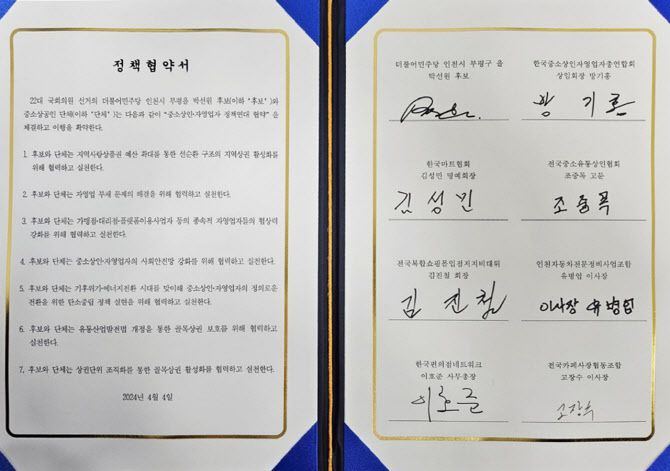 정책협약서
22대 국회의원 선거의 더불어민주당 인천시 부평을 박선원 후보(이하 '후보')와
중소상공인 단체(이하 '단체')는 다음과 같이 "중소상인·자영업자 정책연대 협약"을
체결하고 이행을 확약한다.
1. 후보와 단체는 지역사랑상품권 예산 확대를 통한 선순환 구조의 지역상권 활성화를
위해 협력하고 실천한다.
2. 후보와 단체는 자영업 부채 문제의 해결을 위해 협력하고 실천한다.
3. 후보와 단체는 가맹점·대리점·플랫폼이용사업자 등의 종속적 자영업자들의 협상력
강화를 위해 협력하고 실천한다.
4. 후보와 단체는 중소상인·자영업자의 사회안전망 강화를 위해 협력하고 실천한다.
5. 후보와 단체는 기후위기·에너지전환 시대를 맞이해 중소상인·자영업자의 정의로운
전환을 위한 탄소중립 정책 실현을 위해 협력하고 실천한다.
6. 후보와 단체는 유통산업발전법 개정을 통한 골목상권 보호를 위해 협력하고
실천한다.
7. 후보와 단체는 상권단위 조직화를 통한 골목상권 활성화를 협력하고 실천한다.
2024년 4월 4일
더불어민주당 인천시 부평구 을
박선원 후보
한국중소상인자영업자총연합회
상임회장 방기홍
방 기홍
한국마트협회
김성민 명예회장
김성민
전국중소유통상인협회
조중목 고문
조중목
전국복합쇼핑몰입점저지비대위
김진철 회장
김진철
인천자동차전문정비사업조합
유병업 이사장
이사장 유병업
한국편의점네트워크
이호준 사무총장
이호준
전국카페사장협동조합
고장수 이사장
고장수